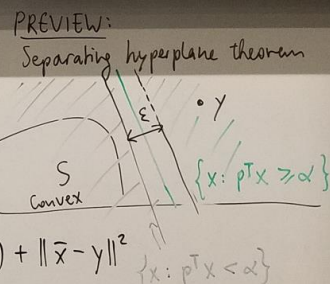 PREVIEW:
Separating hyperplane theorem
ε
y
S
Convex
{x: pᵀx ≥ α}
) + ‖x̄ - y‖²
{x: pᵀx < α}